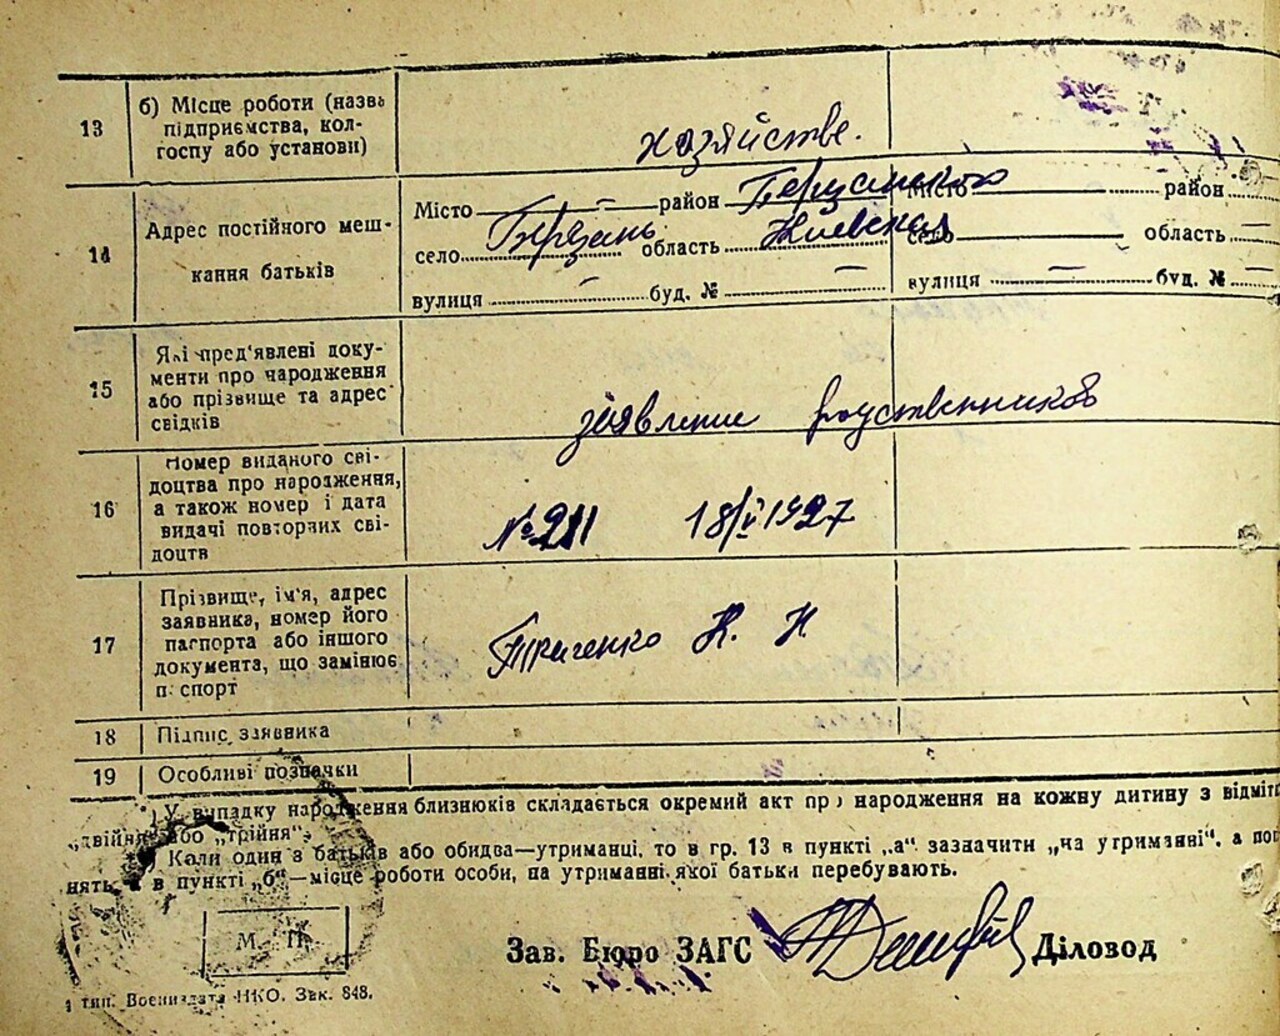 13 б) Місце роботи (назва
підприємства, кол-
госпу або установи)
хозяйстве.
14 Адрес постійного меш-
кання батьків
Місто — район
село Березань область Киевская
вулиця — буд. № —
Місто — район
село — область —
вулиця — буд. № —
15 Які пред'явлені доку-
менти про народження
або прізвище та адрес
свідків
заявление родственников
16 Номер виданого сві-
доцтва про народження,
а також номер і дата
видачі повторних сві-
доцтв
№ 211 18/V 1927
17 Прізвище, ім'я, адрес
заявника, номер його
паспорта або іншого
документа, що замінює
паспорт
Ткаченко Н. Н
18 Підпис заявника
19 Особливі позначки
*) У випадку народження близнюків складається окремий акт про народження на кожну дитину з відміт
„двійня“ або „трійня“.
Коли один з батьків або обидва—утриманці, то в гр. 13 в пункті „а“ зазначити „на утриманні“, а
в пункті „б“—місце роботи особи, на утриманні якої батьки перебувають.
М. П.
Зав. Бюро ЗАГС
Діловод
1 тип. Воениздата НКО. Зак. 848.